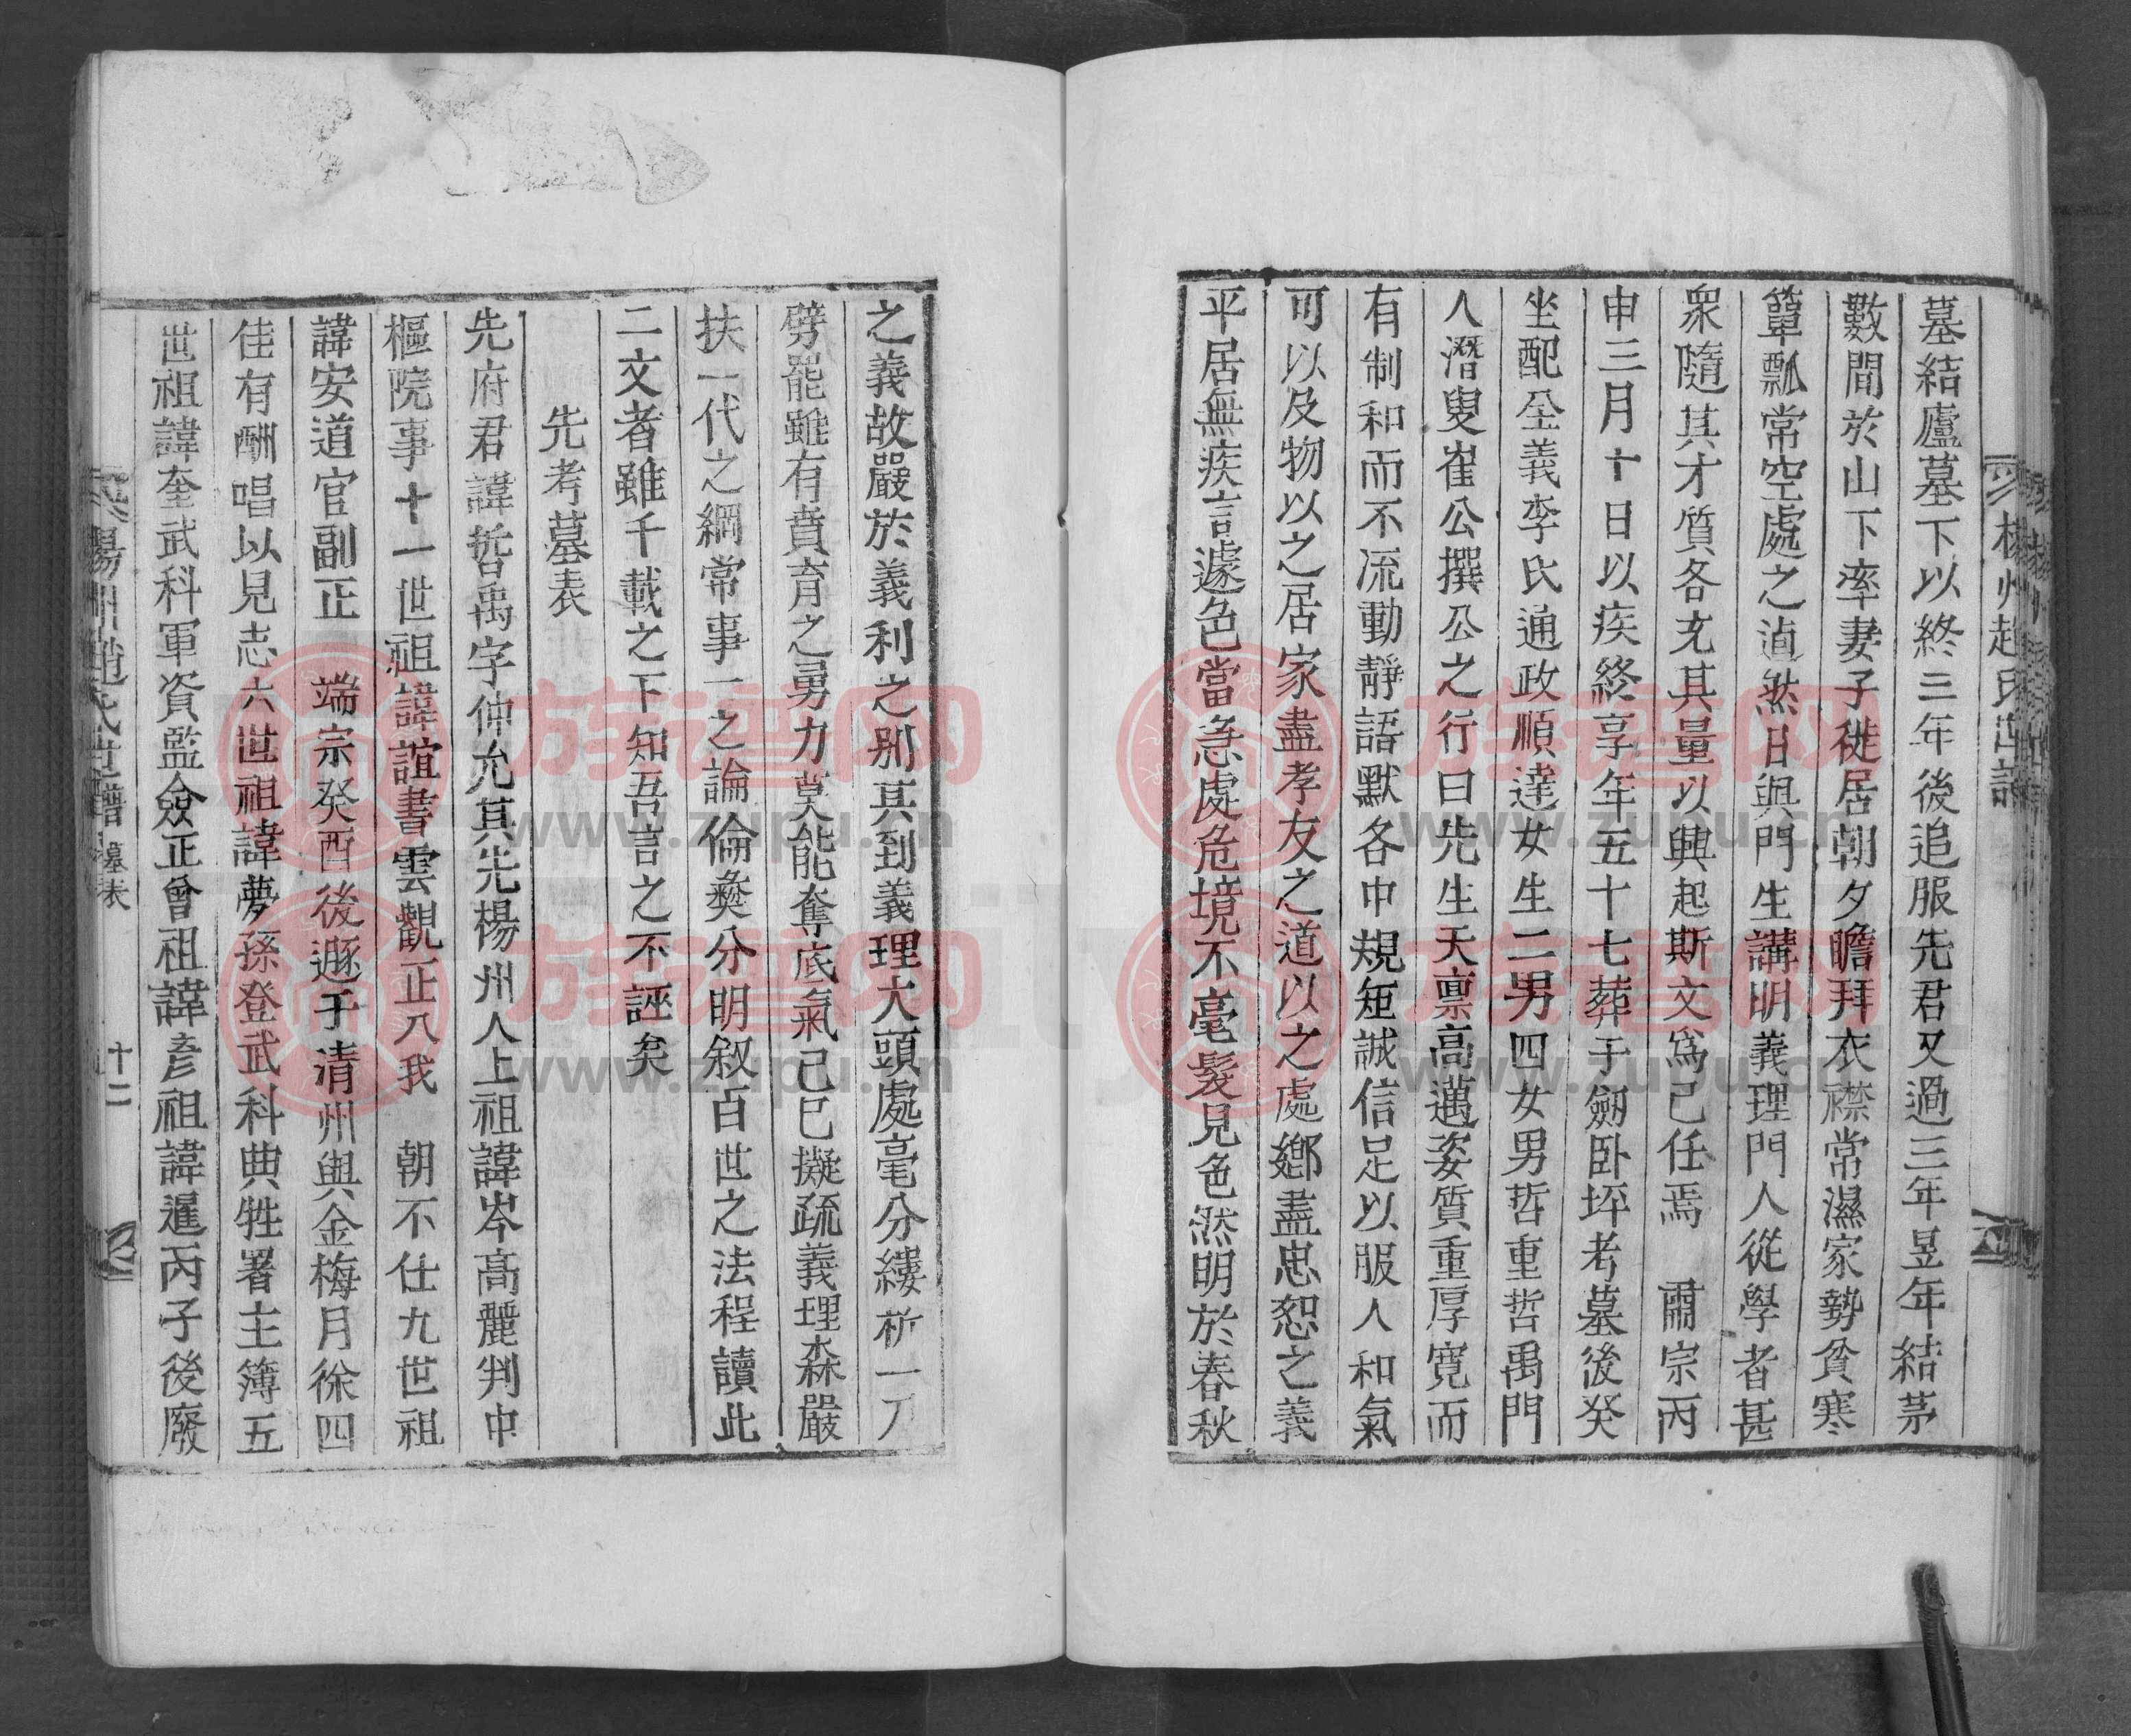 楊州趙氏世譜
墓結廬墓下以終三年後追服先君又過三年昱年結茅
數間於山下率妻子徙居朝夕瞻拜衣襟常濕家勢貧寒
簞瓢常空處之渲然日與門生講明義理門人從學者甚
衆隨其才質各充其量以興起斯文爲己任焉　肅宗丙
申三月十日以疾終享年五十七葬于劒卧坪考墓後癸
坐配全義李氏通政順達女生二男四女男哲重哲禹門
人潛叟崔公撰公之行曰先生天禀高邁姿質重厚寬而
有制和而不流動靜語默各中規矩誠信足以服人和氣
可以及物以之居家盡孝友之道以之處鄕盡忠恕之義
平居無疾言遽色當急處危境不毫髮見色然明於春秋
之義故嚴於義利之别其到義理大頭處毫分縷析一刀
劈罷雖有賁育之勇力莫能奪底氣己已擬疏義理森嚴
扶一代之綱常事一之論倫彜分明叙百世之法程讀此
二文者雖千載之下知吾言之不誣矣
先考墓表
先府君諱哲禹字仲允其先楊州人上祖諱岑高麗判中
樞院事十一世祖諱誼書雲觀正入我　朝不仕九世祖
諱安道官副正　端宗癸酉後遯于清州與金梅月徐四
佳有酬唱以見志六世祖諱夢孫登武科典牲署主簿五
世祖諱奎武科軍資監僉正曾祖諱彦祖諱暹丙子後廢
楊州趙氏世譜　墓表　十二
族谱网
www.zupu.cn
族谱网
www.zupu.cn
族谱网
www.zupu.cn
族谱网
www.zupu.cn